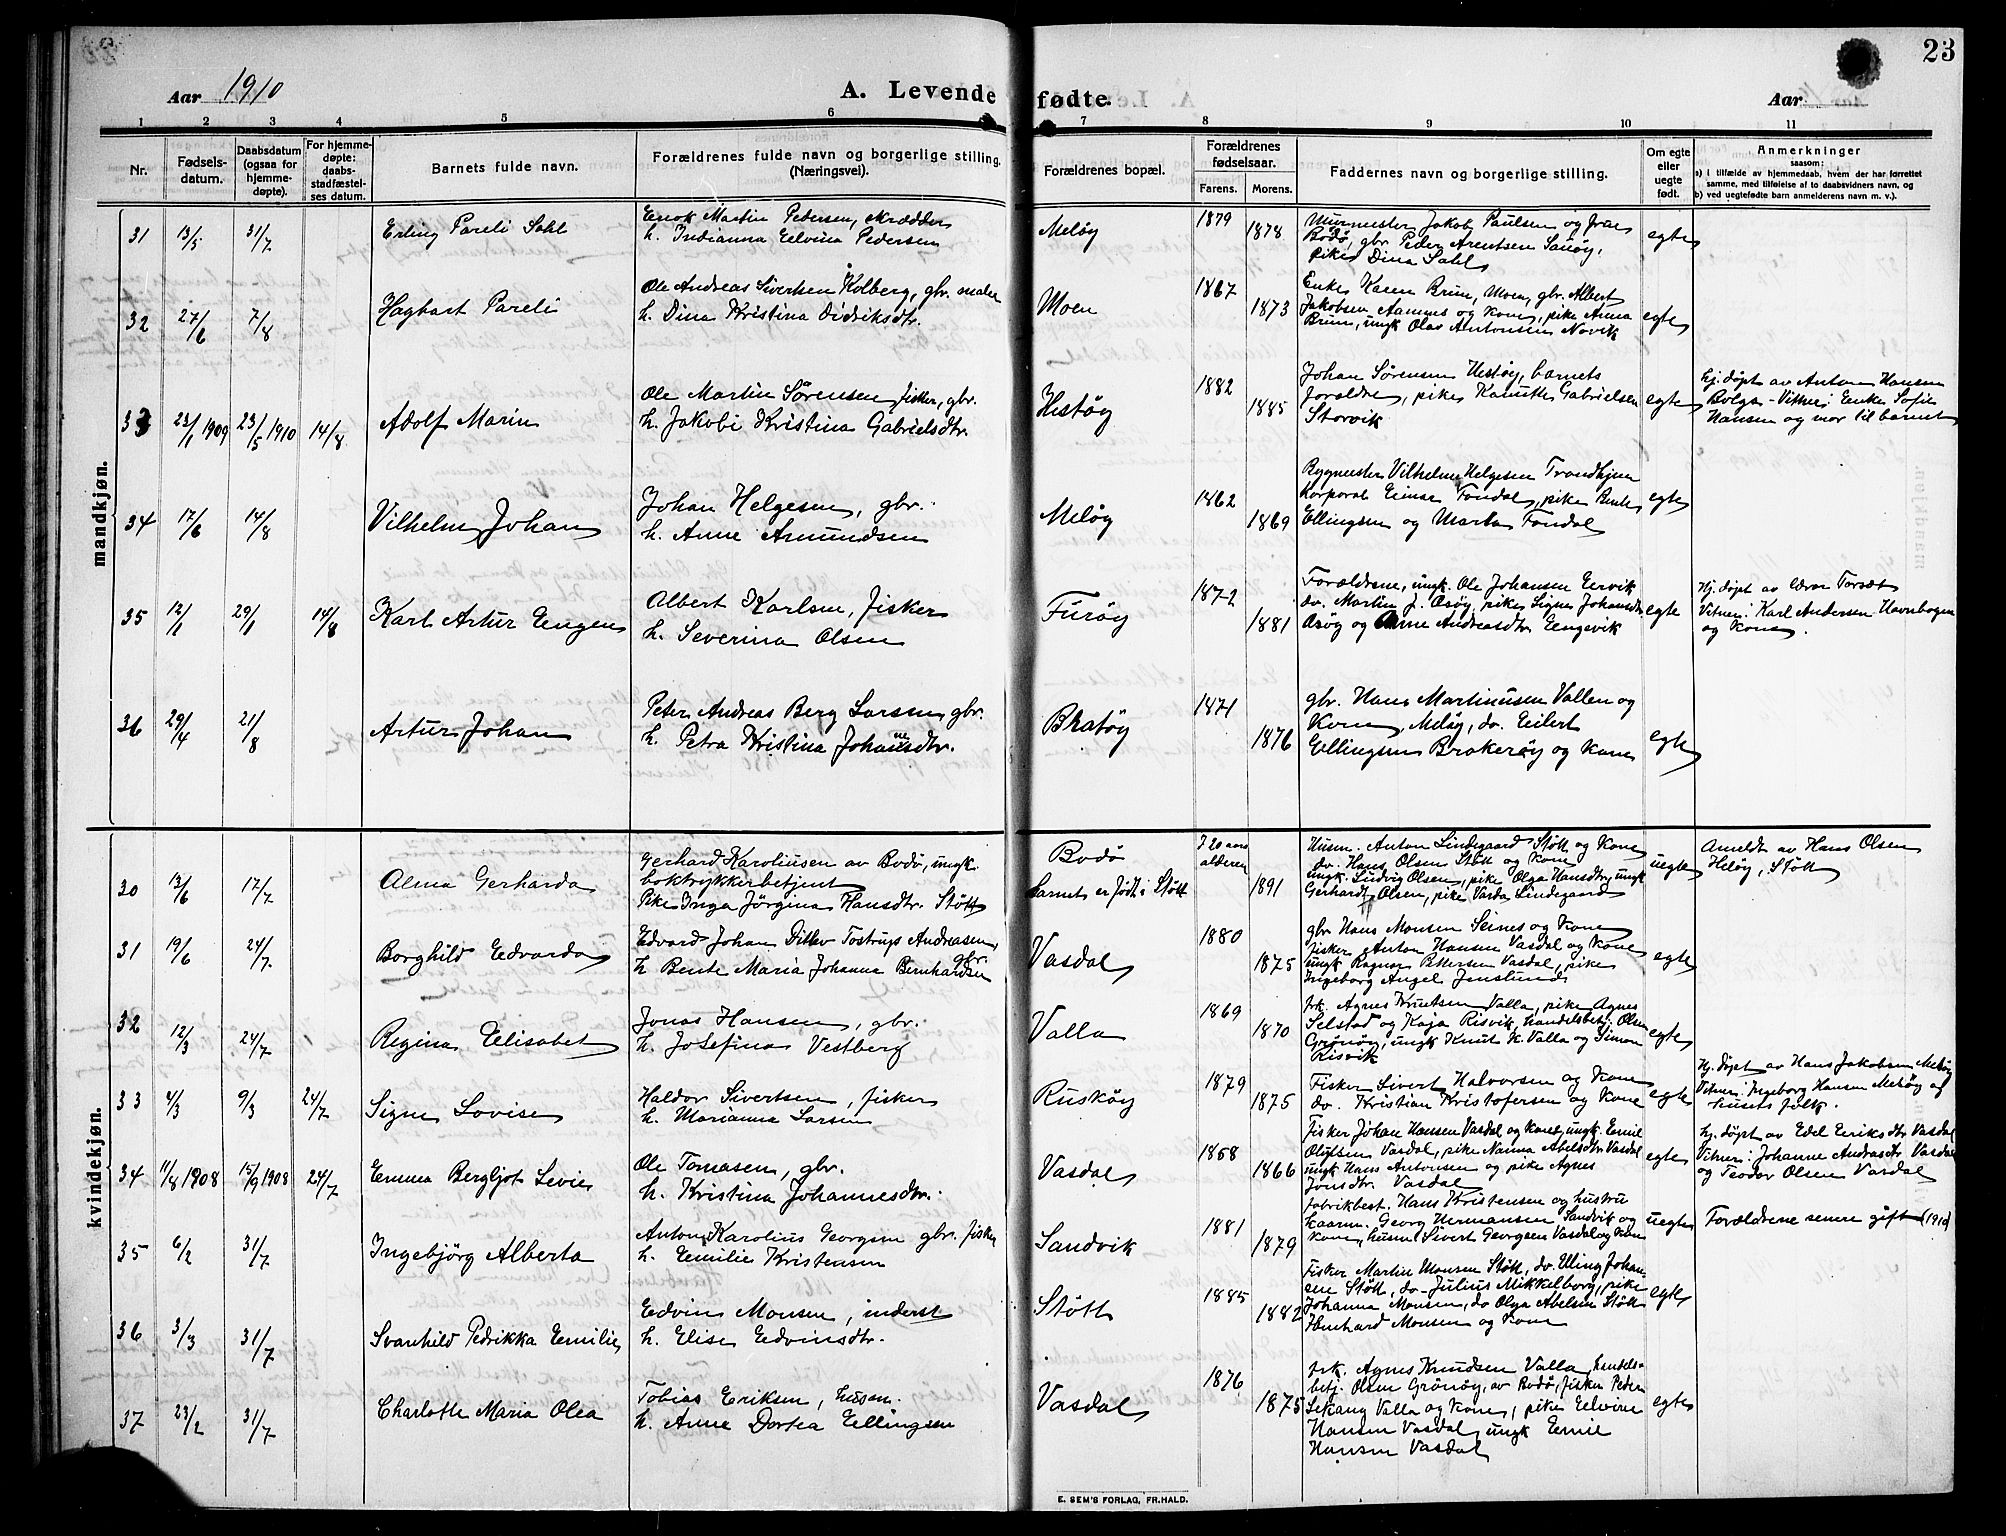 23
Aar 1910
A. Levende fødte.
Aar
1 2 3 4 5 6 7 8 9 10 11
Nr.
Fødsels-
datum.
Daabsdatum
(ogsaa for
hjemme-
døpte).
For hjemme-
døpte:
daabs-
stadfæstel-
ses datum.
Barnets fulde navn.
Forældrenes fulde navn og borgerlige stilling.
(Næringsvei).
Forældrenes bopæl.
Forældrenes
fødselsaar.
Farens. Morens.
Faddernes navn og borgerlige stilling.
Om egte
eller
uegte
født.
Anmerkninger
saasom:
a) i tilfælde av hjemmedaab, hvem der har forrettet
samme, med tilføielse af to daabsvidners navn, og
b) ved uegtefødte barn anmelderens navn m. v.).
mandkjøn.
31 13/5 31/7 Erling Pareli Dahl
Enok Martin Pedersen, skrædder
h. Indianna Elvina Pedersen
Meløy 1879 1878
Murmester Jakob Paulsen og frue
Bodø, gbr. Peder Arentsen Sauøy,
pike Dina Dahl
egte
32 27/6 7/8 Hagbart Pareli
Ole Andreas Sivertsen Kolberg, gbr. maler
h. Dina Kristina Didriksdtr.
Moen 1867 1873
Enke Karen Brun, Moen, gbr. Albert
Jakobsen Aamnes og kone, pike Anna
Brun, ungk Olav Antonsen Novik
egte
33 23/1 1909 23/5 1910 14/8 Adolf Marin
Ole Martin Sörensen fisker, gbr.
h. Jakobi Kristina Gabrielsdtr.
Hestøy 1882 1885
Johan Sørensen Hestøy, barnets
foraldre, pike Kanutte Gabrielsen
Storvik
egte
hj. døpt av Anton Hansen
Bolga - Vitner: Enke Sofie
Hansen og mor til barnet
34 17/6 14/8 Vilhelm Johan
Johan Helgesen, gbr.
h. Anne Amundsen
Meløy 1862 1869
Bygmester Vilhelm Helgesen Trondhjem
korporal Einar Fondal, pike Bente
Ellingsen og Marta Fondal
egte
35 12/1 29/1 14/8 Karl Artur Eugen
Albert Karlsen, fisker
h. Severina Olsen
Furøy 1872 1881
Forældrene, ungk. Ole Johansen Eervik
do. Martin J. Osöy, pike Signe Johansdtr.
Osöy og Anne Andreasdtr Eengevik
egte
Hj. døpt av lærer Torsæt
Vitner: Karl Andersen Havnbogen
og kone.
36 29/4 21/8 Artur Johan
Peter Andreas Berg Larsen gbr.
h. Petra Kristina Johannesdtr.
Bratöy 1871 1876
gbr. Hans Martinusen Vallen og
Kone, Meløy, do. Eilert
Ellingsen Brakerøy og kone
egte
kvindekjøn.
30 13/6 17/7 Alma Gerharda
Gerhard Karoliusen av Bodø, ungk.
boktrykkerbetjent
Pike Inga Jörgina Hansdtr. Støtt
Bodø
barnet er født i Støtt
I 20 aars
alderen
1891
Husm. Anton Lindegaard Støtt og kone
do. Hans Olsen Støtt og kone
ungk. Ludvig Olsen, pike Olga Hansdtr, ungk
Gerhardt Olsen, pike Varda Lindegaard
uegte
Anmeldt av Hans Olsen
Heløy, Støtt
31 19/6 24/7 Borghild Edvarda
Edvard Johan Ditlev Tostrup Andreasen,
gbr
h. Bente Maria Johanna Bernhardsen
Vasdal 1880 1875
gbr Hans Monsen Seines og kone
fisker Anton Hansen Vasdal og kone
ungk Ragnar Pettersen Vasdal, pike
Ingeborg Angel Jenslund
egte
32 12/3 24/7 Regina Elisabet
Jonas Hansen, gbr.
h. Josefina Vestberg
Valla 1869 1870
frk. Agnes Knutsen Valla, pike Agnes
Selstad og Kaja Risvik, handelsbetj. Olsen
Grønøy, ungk Knut K. Valla og Simon
Risvik
egte
33 4/3 9/3 24/7 Signe Lovise
Haldor Sivertsen, fisker
h. Marianna Larsen
Ruskøy 1879 1875
Fisker Sivert Halvorsen og kone
do. Kristian Kristofersen og kone
egte
Hj. døpt av Hans Jakobsen Meløy
Vitner: Ingeborg Hansen Meløy af
husets folk.
34 11/8 1908 15/9 1908 24/7 Emma Bergljot Sevie
Ole Tomasen, gbr.
h. Kristina Johannesdtr.
Vasdal 1858 1866
fisker Johan Hansen Vasdal og kone, ungk. Emil
Olufsen Vasdal, pike Nanna Abelsdtr Vasdal
ungk Hans Antonsen og pike Agnes
Jonsdtr. Vasdal
egte
hj. døpt av Edel Eriksdtr Vasdal
Vitner: Johanne Andreasdtr Vasdal
og Teodor Olsen Vasdal
35 6/2 31/7 Ingebjörg Alberta
Anton Karolius Georgsen gbr. fisker
h. Emilie Kristensen
Sandvik 1881 1879
fabrikbest. Hans Kristensen og hustru
kaarm. Georg Hermansen Sandvik og
kone, husm Sivert Georgsen Vasdal og kone
uegte
Forældrene senere gift (1910)
36 3/3 31/7 Svanhild Pedrikka Emilie
Edvin Monsen, inderst
h. Elise Edvinsdtr.
Støtt 1885 1882
Fisker Martin Monsen Støtt, do. Elling Johan-
sen Støtt, do - Julius Mikkelborg, pike
Johanna Monsen, do Olga Abelsen Støtt
Henhard Monsen og kone
egte
37 23/2 31/7 Charlotte Maria Olea
Tobias Eriksen, husm.
h. Anne Dortea Ellingsen
Vasdal 1876 1875
frk. Agnes Knudsen Valla, handels-
betj. Olsen Grönöy, av Bodø, fisker Peder
Lekang Valla og kone, pike Elvine
Hansen Vasdal, ungk Emil
Hansen Vasdal
egte
E. SEM'S FORLAG, FR.HALD.